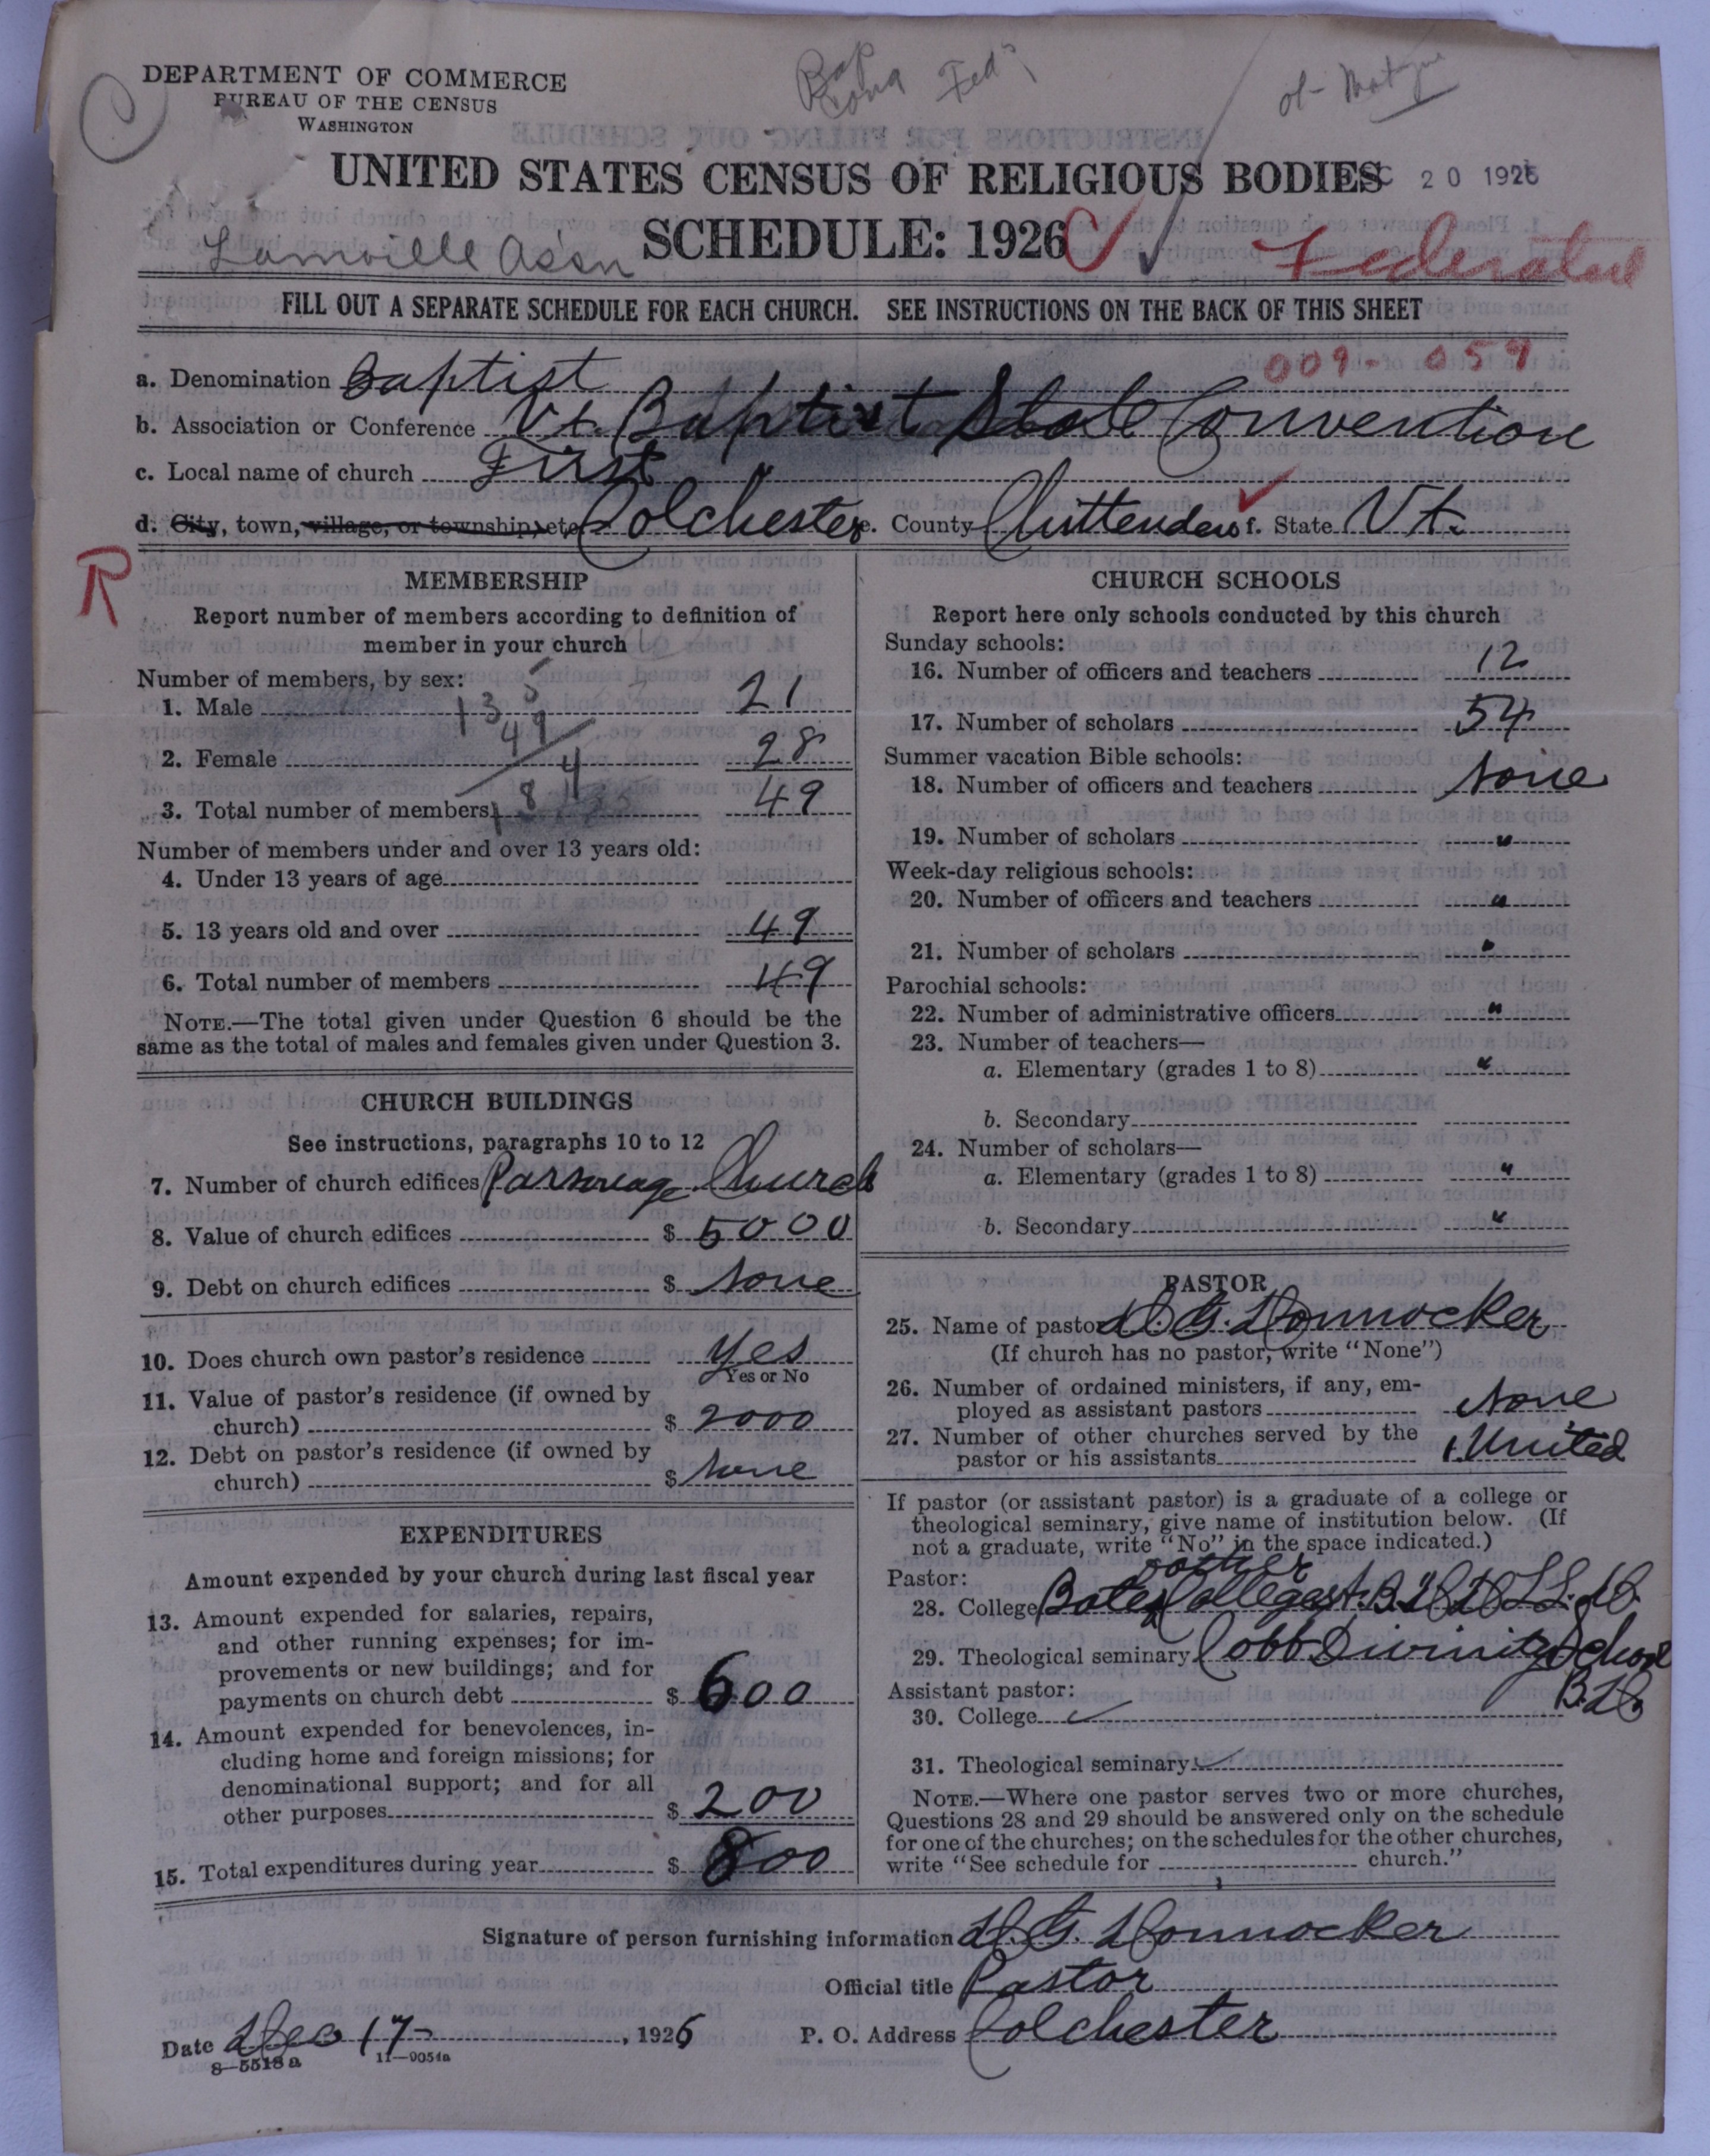 DEPARTMENT OF COMMERCE
BUREAU OF THE CENSUS
WASHINGTON
Bap
Cong Fed
UNITED STATES CENSUS OF RELIGIOUS BODIES
20 1926
SCHEDULE: 1926
Lamoille Assn
Federated
FILL OUT A SEPARATE SCHEDULE FOR EACH CHURCH. SEE INSTRUCTIONS ON THE BACK OF THIS SHEET
009-059
a. Denomination Baptist
b. Association or Conference Vt. Baptist State Convention
c. Local name of church First
d. City, town, village, or township, etc. Colchester e. County Chittenden f. State Vt.
R
MEMBERSHIP
Report number of members according to definition of
member in your church
Number of members, by sex:
1. Male 21
135
49
2. Female 28
184
3. Total number of members 49
Number of members under and over 13 years old:
4. Under 13 years of age
5. 13 years old and over 49
6. Total number of members 49
NOTE.—The total given under Question 6 should be the
same as the total of males and females given under Question 3.
CHURCH BUILDINGS
See instructions, paragraphs 10 to 12
7. Number of church edifices Parsonage Church
8. Value of church edifices $ 5000
9. Debt on church edifices $ None
10. Does church own pastor's residence Yes
Yes or No
11. Value of pastor's residence (if owned by
church) $ 2000
12. Debt on pastor's residence (if owned by
church) $ None
EXPENDITURES
Amount expended by your church during last fiscal year
13. Amount expended for salaries, repairs,
and other running expenses; for im-
provements or new buildings; and for
payments on church debt $ 600
14. Amount expended for benevolences, in-
cluding home and foreign missions; for
denominational support; and for all
other purposes $ 200
15. Total expenditures during year $ 800
CHURCH SCHOOLS
Report here only schools conducted by this church
Sunday schools:
16. Number of officers and teachers 12
17. Number of scholars 54
Summer vacation Bible schools:
18. Number of officers and teachers None
19. Number of scholars "
Week-day religious schools:
20. Number of officers and teachers "
21. Number of scholars "
Parochial schools:
22. Number of administrative officers "
23. Number of teachers—
a. Elementary (grades 1 to 8) "
b. Secondary
24. Number of scholars—
a. Elementary (grades 1 to 8) "
b. Secondary "
PASTOR
25. Name of pastor
(If church has no pastor, write "None")
26. Number of ordained ministers, if any, em-
ployed as assistant pastors None
27. Number of other churches served by the
pastor or his assistants 1. United
If pastor (or assistant pastor) is a graduate of a college or
theological seminary, give name of institution below. (If
not a graduate, write "No" in the space indicated.)
Pastor:
28. College Bates College A.B.
29. Theological seminary Cobb Divinity School
B.D.
Assistant pastor:
30. College
31. Theological seminary
NOTE.—Where one pastor serves two or more churches,
Questions 28 and 29 should be answered only on the schedule
for one of the churches; on the schedules for the other churches,
write "See schedule for church."
Signature of person furnishing information
Official title Pastor
Date Dec 17, 1926 P. O. Address Colchester
8—5518a 11—9054a